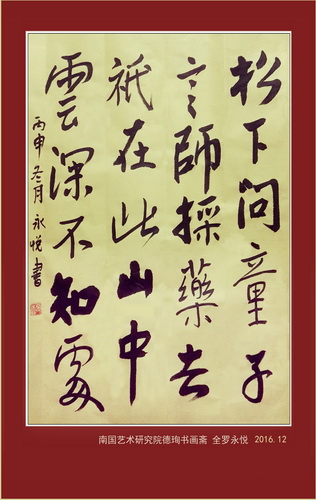 松下问童子
言師採藥去
祇在此山中
雲深不知處
丙申冬月永悦書
南国艺术研究院德珣书画斋 全罗永悦 2016.12